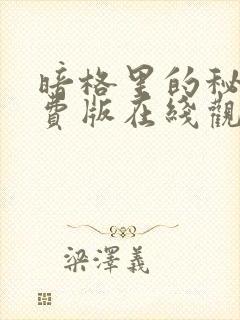 暗格里的秘
費版在綫觀
梁澤義